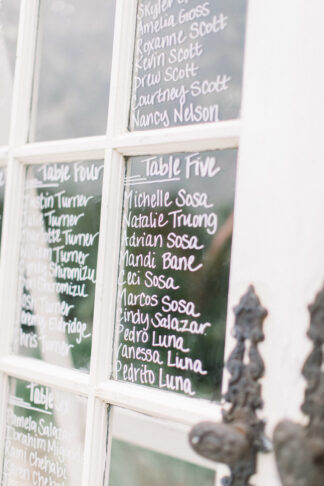 Skyler
Amelia Gross
Roxanne Scott
Kevin Scott
Drew Scott
Courtney Scott
Nancy Nelson
Table Four
Justin Turner
Turner
Turner
Turner
Shiromizu
Shiromizu
Josh Turner
Jeremy Eldridge
Chris Turner
Table Five
Michelle Sosa
Natalie Truong
Adrian Sosa
Mandi Bane
Ceci Sosa
Marcos Sosa
Cindy Salazar
Pedro Luna
Vanessa Luna
Pedrito Luna
Table
Pamela Salazar
Ibrahim
Rami Chehab
Chehab